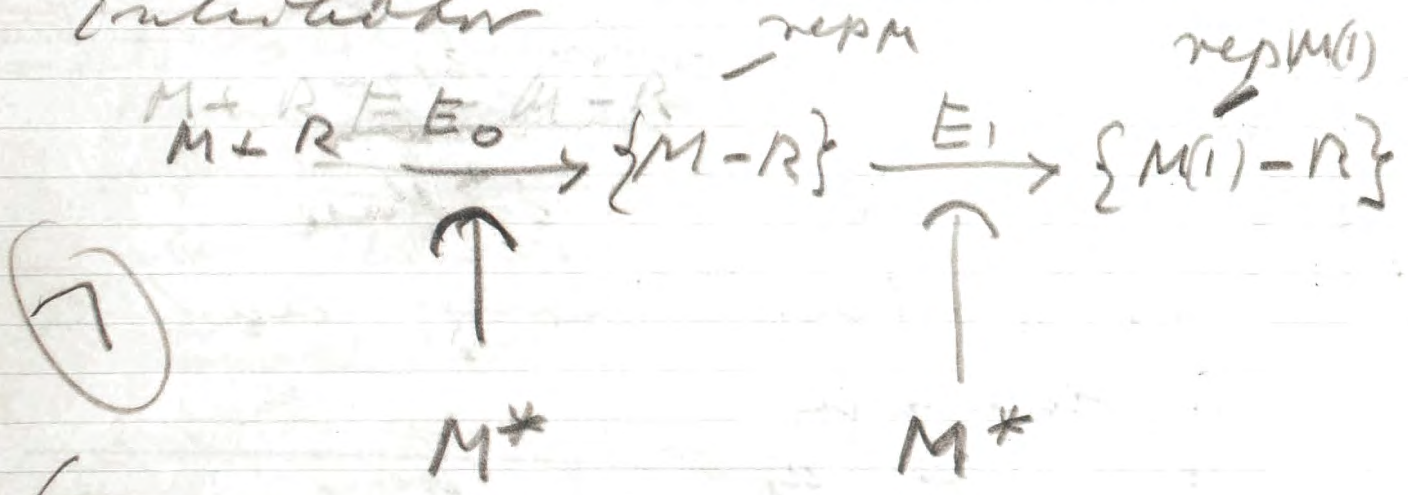 rep M rep M(1)
M + R E₀ → {M - R} E₁ → {M(1) - R}
↑ ↑
7
M* M*